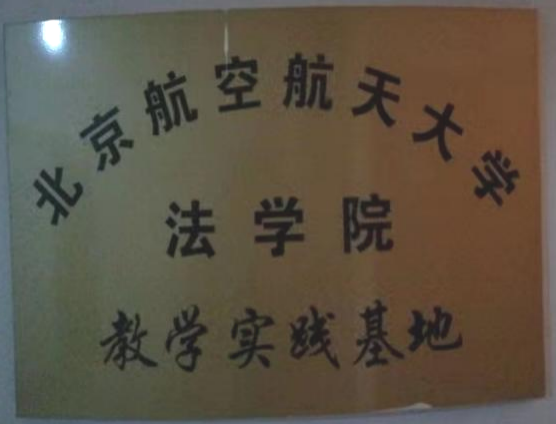 北京航空航天大学
法学院
教学实践基地